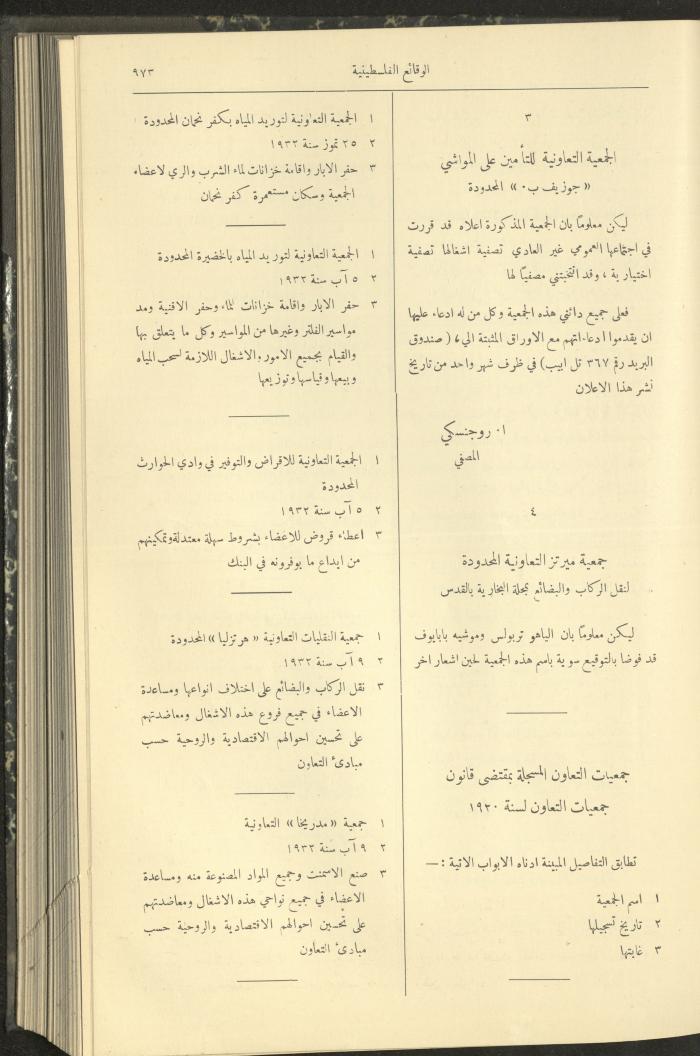 الوقائع الفلسطينية
٩٧٣
٣
الجمعية التعاونية للتأمين على المواشي
« جوزيف ب٠ » المحدودة
ليكن معلومًا بان الجمعية المذكورة اعلاه قد قررت
في اجتماعها العمومي غير العادي تصفية اشغالها تصفية
اختيارية ، وقد انتخبتني مصفيًا لها
فعلى جميع دائني هذه الجمعية وكل من له ادعاء عليها
ان يقدموا ادعاءاتهم مع الاوراق المثبتة الي، ( صندوق
البريد رقم ٣٦٧ تل ابيب) في ظرف شهر واحد من تاريخ
نشر هذا الاعلان
ا٠ روجنسكي
المصفي
٤
جمعية ميرتز التعاونية المحدودة
لنقل الركاب والبضائع بمحلة البخارية بالقدس
ليكن معلومًا بان الياهو تربولس وموشيه بابايوف
قد فوضا بالتوقيع سوية باسم هذه الجمعية لحين اشعار اخر
جمعيات التعاون المسجلة بمقتضى قانون
جمعيات التعاون لسنة ١٩٢٠
تطابق التفاصيل المبينة ادناه الابواب الاتية :—
١ اسم الجمعية
٢ تاريخ تسجيلها
٣ غايتها
١ الجمعية التعاونية لتوريد المياه بكفر نحمان المحدودة
٢ ٢٥ تموز سنة ١٩٣٢
٣ حفر الابار واقامة خزانات لماء الشرب والري لاعضاء
الجمعية وسكان مستعمرة كفر نحمان
١ الجمعية التعاونية لتوريد المياه بالخضيرة المحدودة
٢ ٥ آب سنة ١٩٣٢
٣ حفر الابار واقامة خزانات للماء وحفر الاقنية ومد
مواسير الفلتر وغيرها من المواسير وكل ما يتعلق بها
والقيام بجميع الامور والاشغال اللازمة لسحب المياه
وبيعها وقياسها وتوزيعها
١ الجمعية التعاونية للاقراض والتوفير في وادي الحوارث
المحدودة
٢ ٥ آب سنة ١٩٣٢
٣ اعطاء قروض للاعضاء بشروط سهلة معتدلة وتمكينهم
من ايداع ما يوفرونه في البنك
١ جمعية النقليات التعاونية « هرتزليا » المحدودة
٢ ٩ آب سنة ١٩٣٢
٣ نقل الركاب والبضائع على اختلاف انواعها ومساعدة
الاعضاء في جميع فروع هذه الاشغال ومعاضدتهم
على تحسين احوالهم الاقتصادية والروحية حسب
مبادئ التعاون
١ جمعية « مدريخا » التعاونية
٢ ٩ آب سنة ١٩٣٢
٣ صنع الاسمنت وجميع المواد المصنوعة منه ومساعدة
الاعضاء في جميع نواحي هذه الاشغال ومعاضدتهم
على تحسين احوالهم الاقتصادية والروحية حسب
مبادئ التعاون